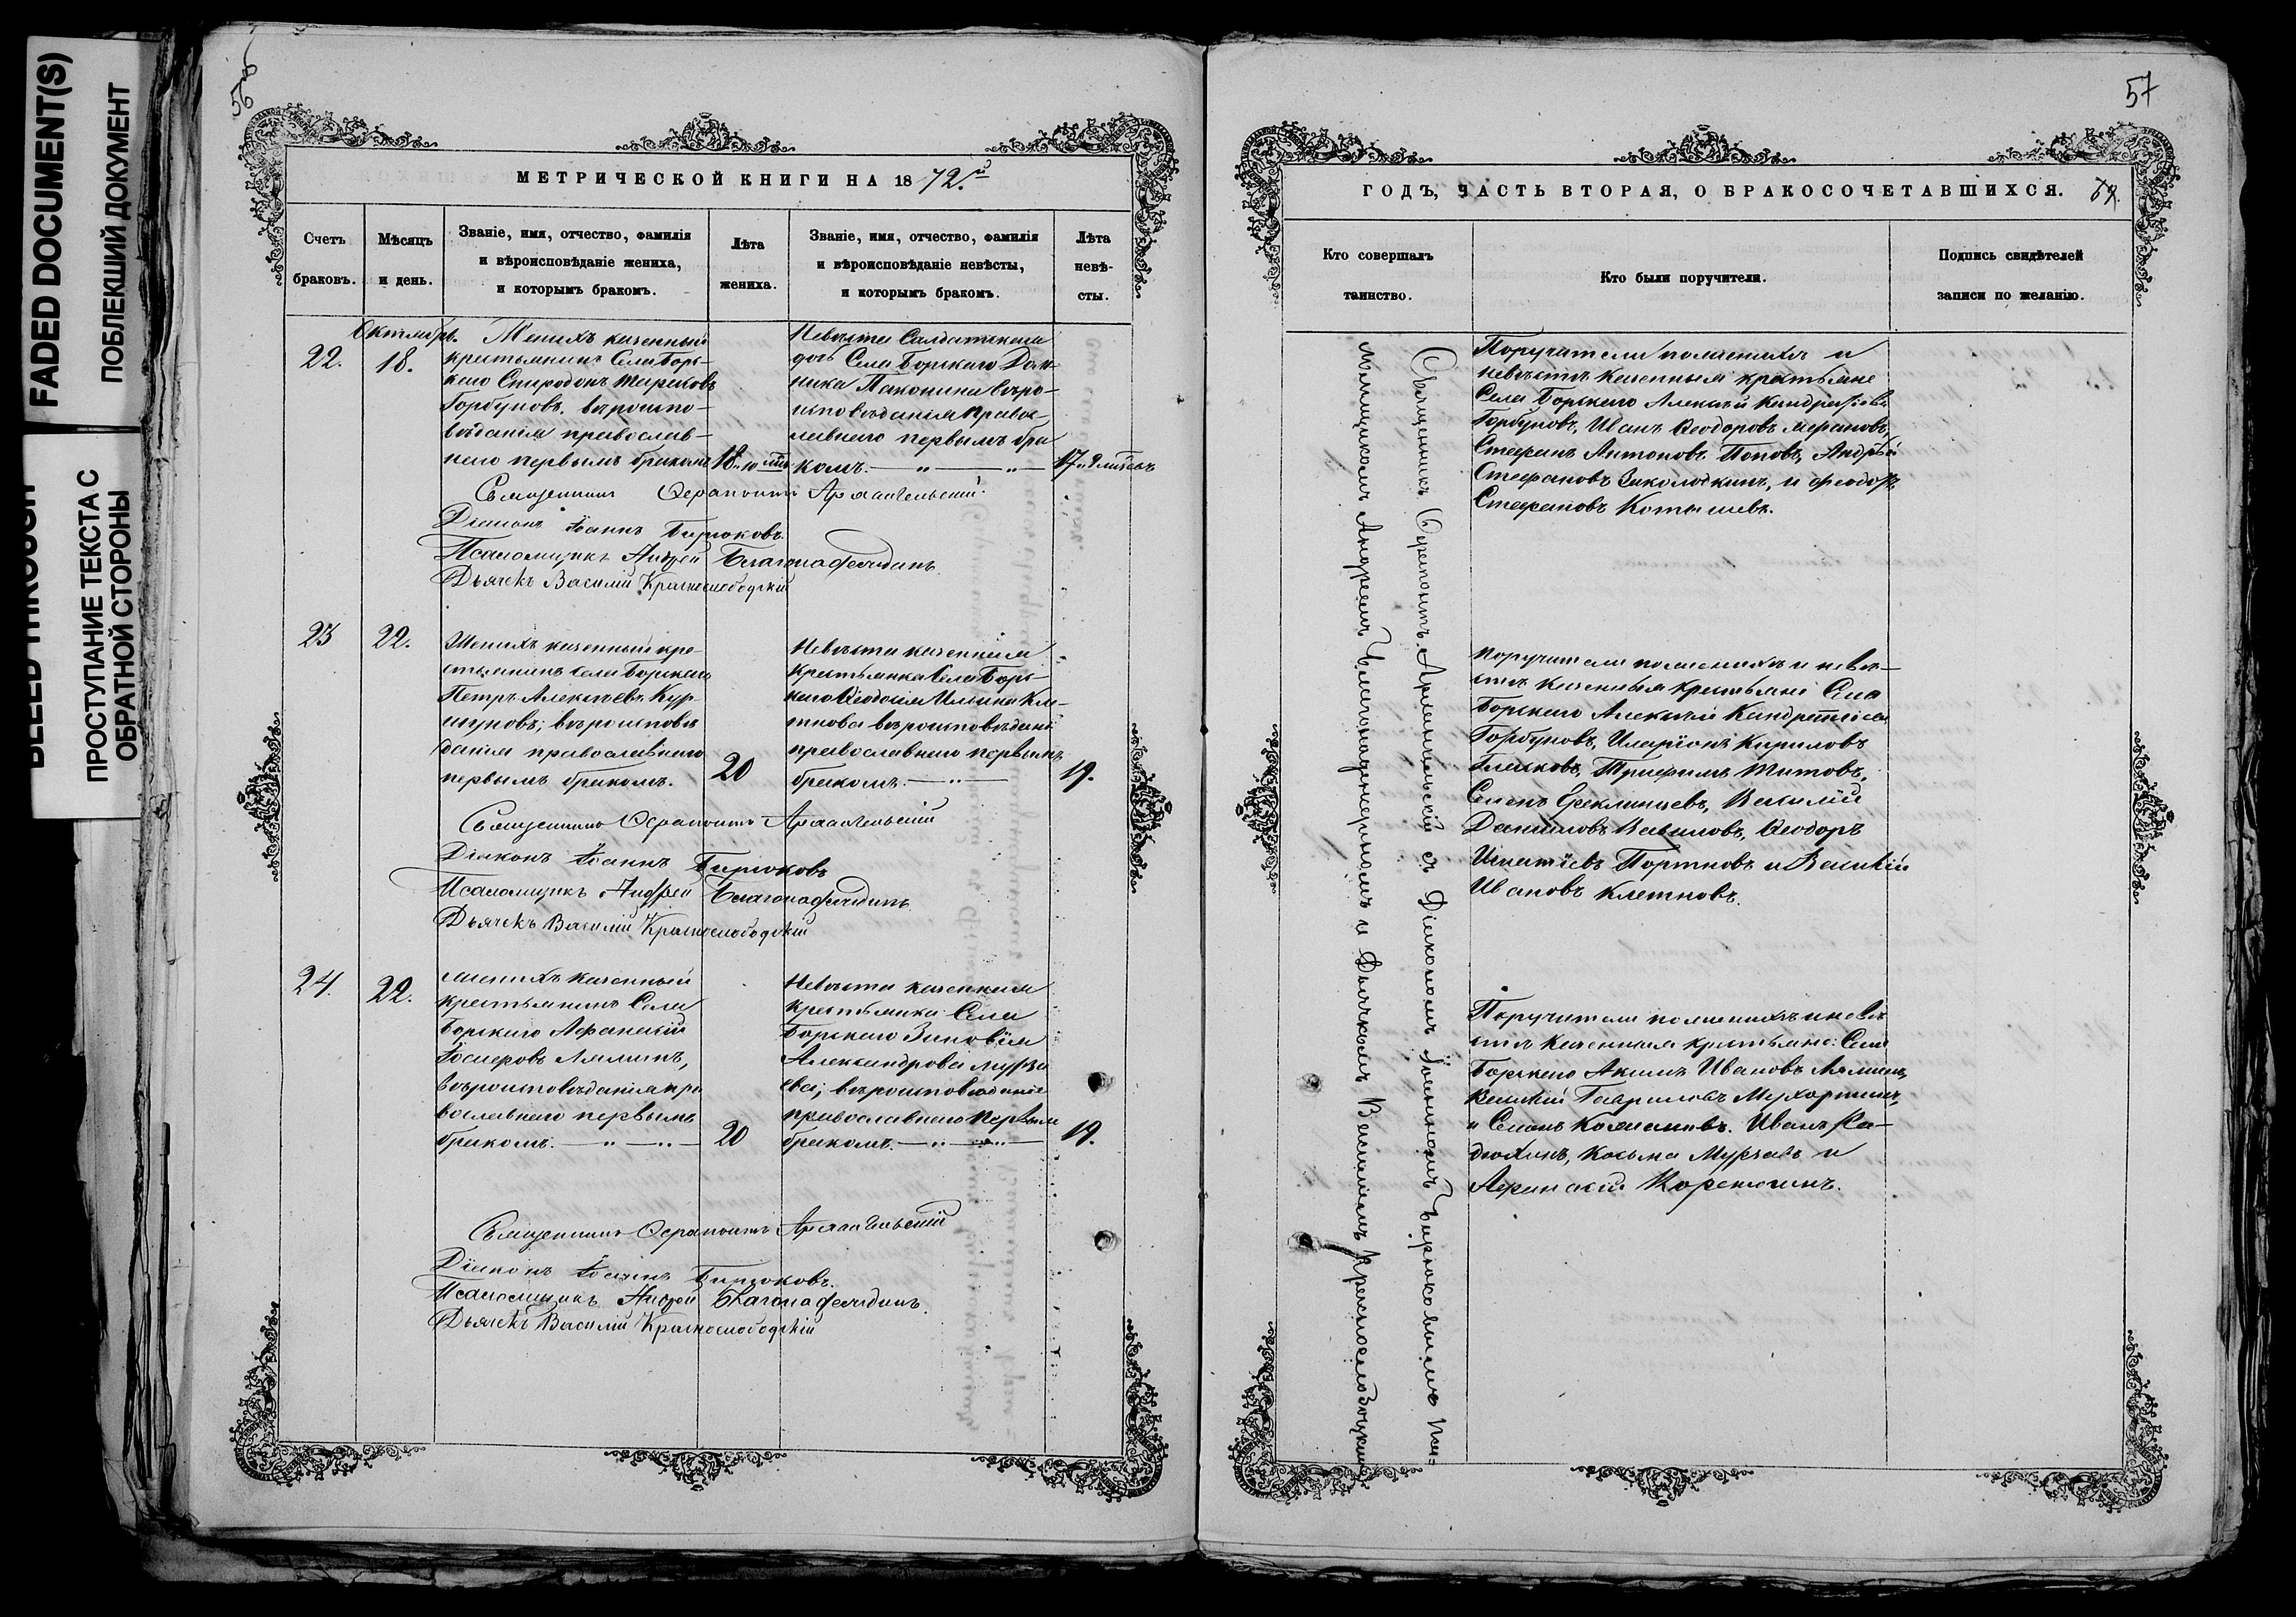 FADED DOCUMENT(S)
ПОБЛЕКШИЙ ДОКУМЕНТ
BLEED THROUGH
ПРОСТУПАНИЕ ТЕКСТА С
ОБРАТНОЙ СТОРОНЫ
56
МЕТРИЧЕСКОЙ КНИГИ НА 1872.й
Счетъ браковъ.
Мѣсяцъ и день.
Званіе, имя, отчество, фамилія
и вѣроисповѣданіе жениха,
и которымъ бракомъ.
Лѣта
жениха.
Званіе, имя, отчество, фамилія
и вѣроисповѣданіе невѣсты,
и которымъ бракомъ.
Лѣта
невѣ-
сты.
Октябрь.
22.
18.
Женихъ казенный
крестьянинъ Села Борь-
каго Спиридонъ
Горбуновъ, вѣроиспо-
вѣданія православ-
наго первымъ бракомъ
18 „ 10
Невѣста Салдатская
дочь Села Борскаго Дом-
ника вѣро-
исповѣданія право-
славнаго первымъ бра
комъ. — „ — „ —
17 „ 9
Священникъ Ѳерапонтъ Архангельскій.
Діаконъ Іоаннъ Бирюковъ.
Псаломщикъ Андрей Благонадеждинъ
Дьячекъ Василій Краснослободскій
23
22.
Женихъ казенный кре-
стьянинъ села Борскаго
Петръ Алексѣевъ Кур
шуновъ; вѣроисповѣ
данія православнаго
первымъ бракомъ.
20
Невѣста казенная
крестьянка Села Борь-
каго Ѳеодосія Ильина Кле-
тнова вѣроисповѣданія
православнаго первымъ
бракомъ. — „ —
19.
Священникъ Ѳерапонтъ Архангельскій
Діаконъ Іоаннъ Бирюковъ
Псаломщикъ Андрей Благонадеждинъ
Дьячекъ Василій Краснослободскій
24.
22.
женихъ казенный
крестьянинъ Села
Борскаго Афанасій
Іосифовъ Ляминъ,
вѣроисповѣданія пра
вославнаго первымъ
бракомъ. — „ — „ —
20
Невѣста казенная
крестьянка Села
Борскаго Зиновія
Александрова Мурза
ева; вѣроисповѣданія
православнаго первымъ
бракомъ. — „ — „ —
19.
Священникъ Ѳерапонтъ Архангельскій
Діаконъ Іоаннъ Бирюковъ.
Псаломщикъ Андрей Благонадеждинъ.
Дьячекъ Василій Краснослободскій
57
ГОДЪ, ЧАСТЬ ВТОРАЯ, О БРАКОСОЧЕТАВШИХСЯ.
Кто совершалъ
таинство.
Кто были поручители.
Подпись свидѣтелей
записи по желанію.
Священникъ Ѳерапонтъ Архангельскій съ Діакономъ Іоанномъ Бирюковымъ Пса=
ломщикомъ Андреемъ Благонадеждинымъ и Дьячкомъ Василіемъ Краснослободскимъ
Поручители по женихѣ и
невѣстѣ казенныя крестьяне
Села Борскаго Алексѣй Кандратіевъ
Горбуновъ, Иванъ Ѳеодоровъ
Стефанъ Антоновъ Поповъ, Андрей
Стефановъ Заколодкинъ, и Ѳеодоръ
Стефановъ Котышевъ.
Поручители по женихѣ и невѣ-
стѣ казенныя крестьяне Села
Борскаго Алексѣй Кандратіевъ
Горбуновъ, Иларіонъ Кириловъ
Глазковъ, Трифилъ Титовъ,
Семенъ Василій
Даниловъ Вавиловъ, Ѳеодоръ
Игнатіевъ Портновъ и Василій
Ивановъ Клетновъ.
Поручители по женихѣ и невѣ
стѣ казенныя крестьяне: Села
Борскаго Акимъ Ивановъ Лямин,
Василій Гавриловъ
и Семенъ Иванъ Ка-
дюхинъ, Косьма Мурзаевъ и
Афанасій Корепогинъ.